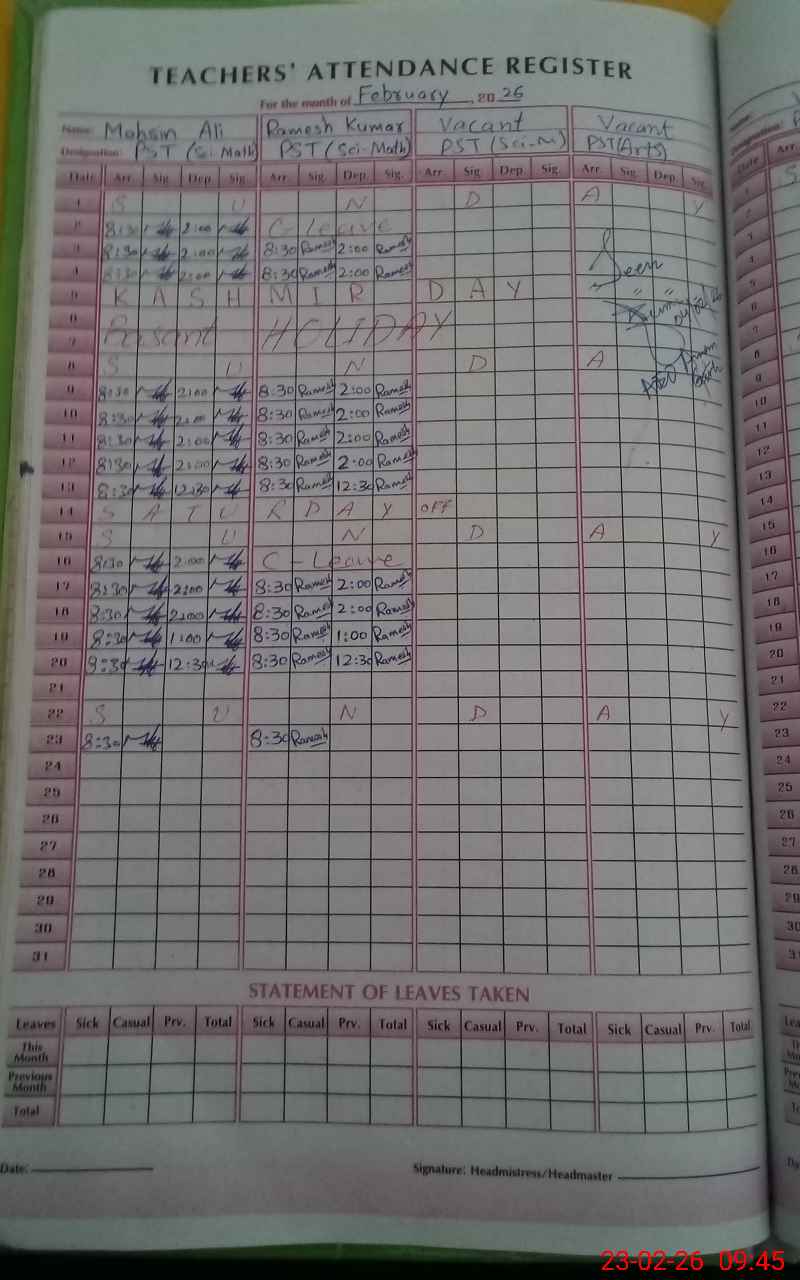 TEACHERS' ATTENDANCE REGISTER
For the month of February, 20 26
Name: Mohsin Ali Ramesh Kumar Vacant Vacant
Designation: PST (Sci-Math) PST (Sci-Math) PST (Sci-M) PST (Arts)
Date Arr. Sig. Dep. Sig. Arr. Sig. Dep. Sig. Arr. Sig. Dep. Sig. Arr. Sig. Dep. Sig.
1 S U N D A Y
2 8:30 2:00 C-Leave
3 8:30 2:00 8:30 Ramesh 2:00 Ramesh
4 8:30 2:00 8:30 Ramesh 2:00 Ramesh Seen
5 K A S H M I R D A Y
6
7 Basant HOLIDAY
8 S U N D A
9 8:30 2:00 8:30 Ramesh 2:00 Ramesh
10 8:30 2:00 8:30 Ramesh 2:00 Ramesh
11 8:30 2:00 8:30 Ramesh 2:00 Ramesh
12 8:30 2:00 8:30 Ramesh 2:00 Ramesh
13 8:30 12:30 8:30 Ramesh 12:30 Ramesh
14 S A T U R D A Y OFF
15 S U N D A Y
16 8:30 2:00 C-Leave
17 8:30 2:00 8:30 Ramesh 2:00 Ramesh
18 8:30 2:00 8:30 Ramesh 2:00 Ramesh
19 8:30 1:00 8:30 Ramesh 1:00 Ramesh
20 8:30 12:30 8:30 Ramesh 12:30 Ramesh
21
22 S U N D A Y
23 8:30 8:30 Ramesh
24
25
26
27
28
29
30
31
STATEMENT OF LEAVES TAKEN
Leaves Sick Casual Prv. Total Sick Casual Prv. Total Sick Casual Prv. Total Sick Casual Prv. Total
This Month
Previous Month
Total
Date: Signature: Headmistress/Headmaster
23-02-26 09:45